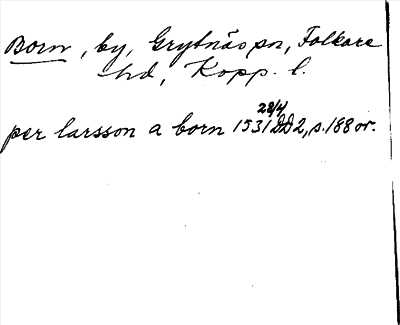 Born, by, Grytnäs sn, Folkare
hd, Kopp. l.
28/4
per larsson a born 1531 DD2, s. 188 or.